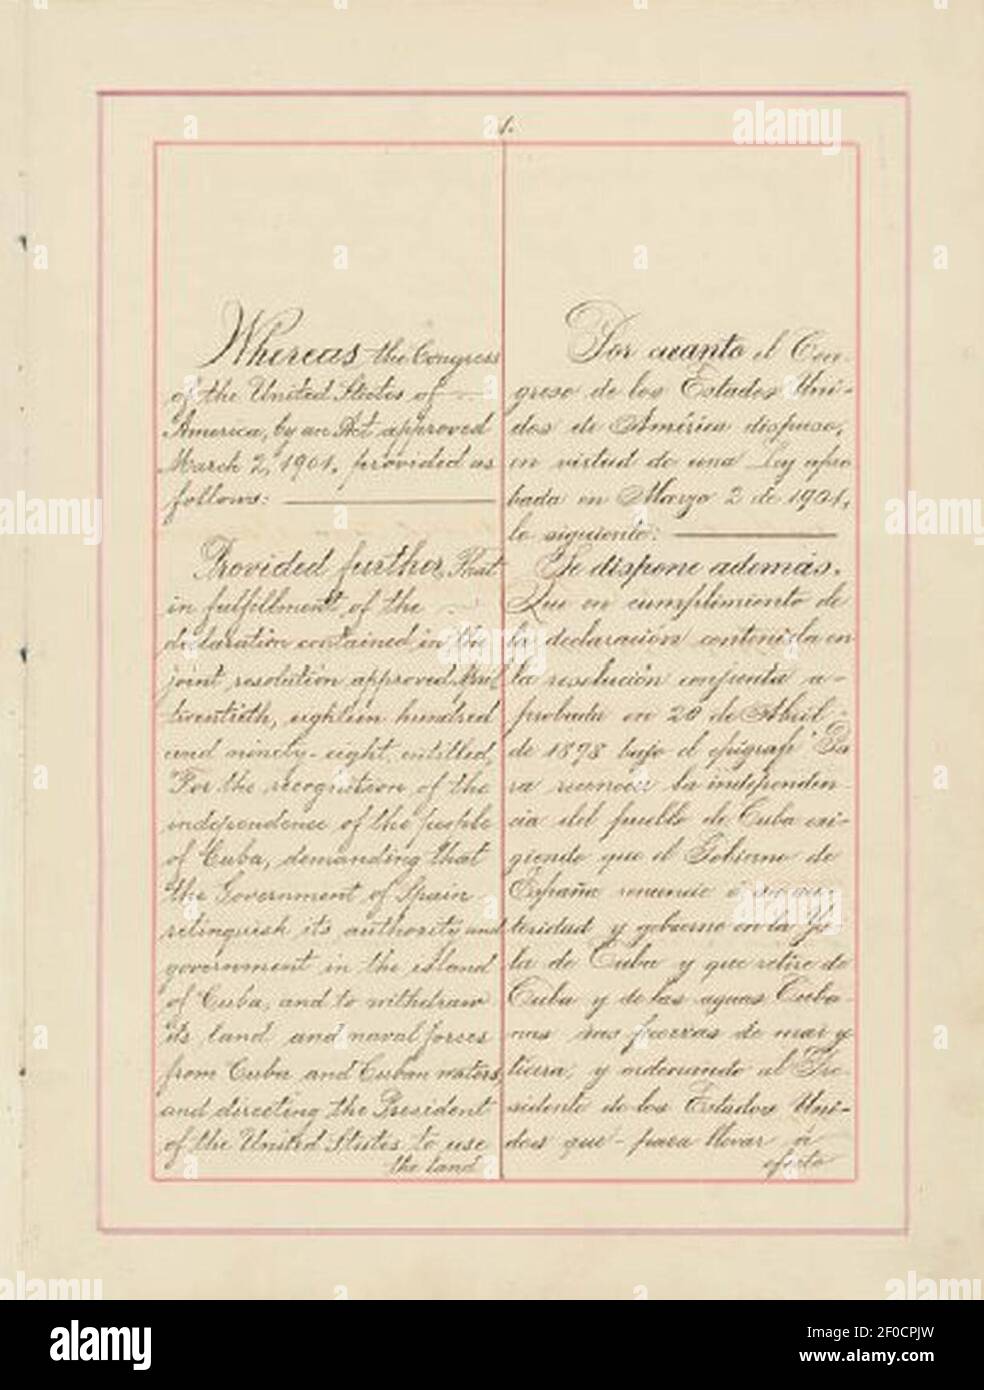 1.
Whereas the Congress
of the United States of
America, by an Act approved
March 2, 1901, provided as
follows:
Provided further, That
in fulfillment of the
declaration contained in the
joint resolution approved April
twentieth, eighteen hundred
and ninety-eight, entitled,
"For the recognition of the
independence of the people
of Cuba, demanding that
the Government of Spain
relinquish its authority and
government in the island
of Cuba, and to withdraw
its land and naval forces
from Cuba and Cuban waters,
and directing the President
of the United States to use
the land
Por cuanto el Con-
greso de los Estados Uni-
dos de América dispuso,
en virtud de una Ley apro
bada en Marzo 2 de 1901,
lo siguiente:
Se dispone además.
Que en cumplimiento de
la declaración contenida en
la resolución conjunta a-
probada en 20 de Abril
de 1898 bajo el epígrafe "Pa
ra reconocer la independen
cia del pueblo de Cuba exi-
giendo que el Gobierno de
España renuncie á su au-
toridad y gobierno en la Ys
la de Cuba y que retire de
Cuba y de las aguas Cuba-
nas sus fuerzas de mar y
tierra, y ordenando al Pre-
sidente de los Estados Uni-
dos que para llevar á
efecto
alamy
a
alamy
Image ID: 2F0CPJW
www.alamy.com